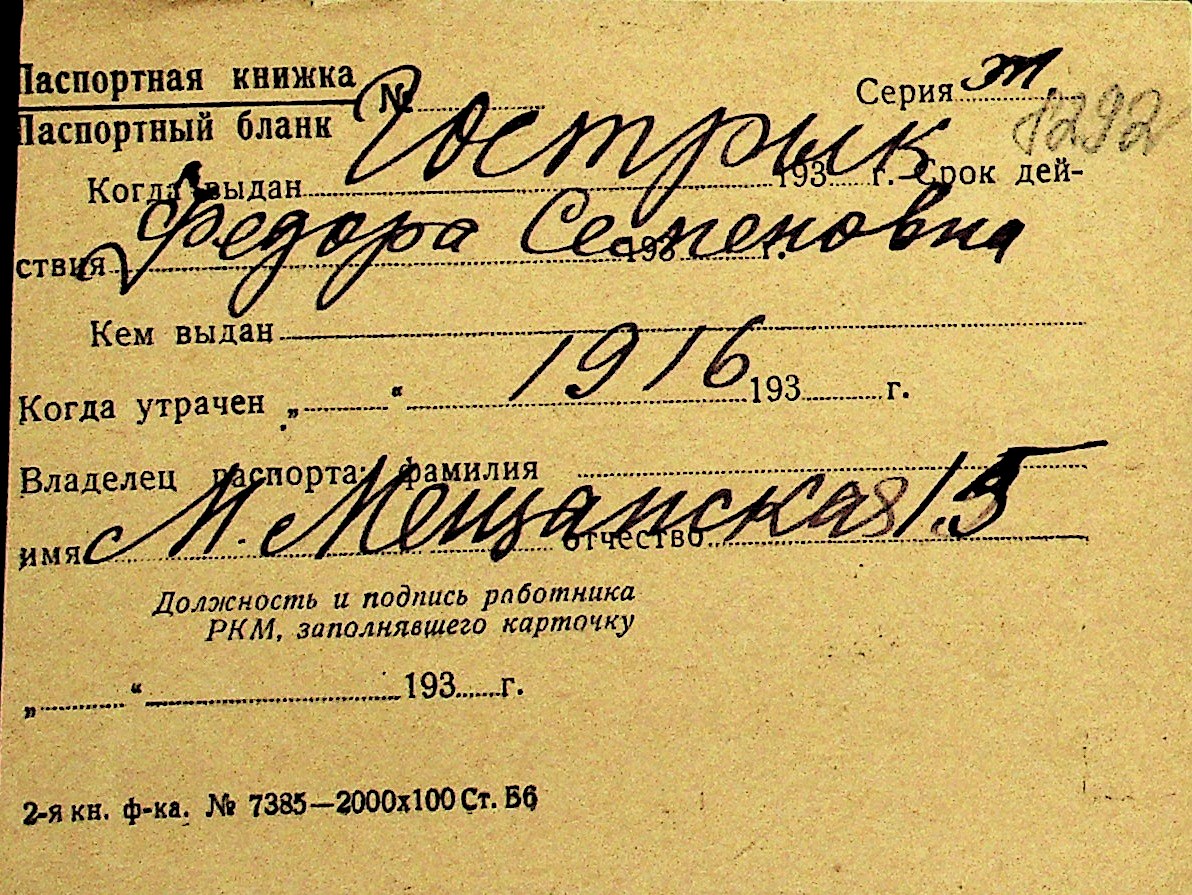 Паспортная книжка
Паспортный бланк № Серия
1292
Когда выдан 193 г. Срок дей-
ствия 193 г.
Федора Семеновна
Кем выдан
1916
Когда утрачен „ “ 193 г.
Владелец паспорта: фамилия
М. Мещанская 15
имя отчество
Должность и подпись работника
РКМ, заполнявшего карточку
„ “ 193 г.
2-я кн. ф-ка. № 7385—2000х100 Ст. Б6